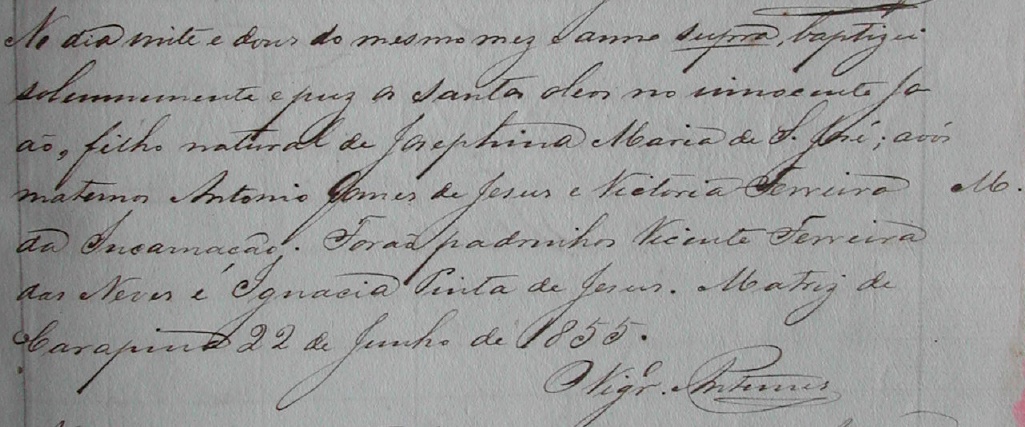 No dia vinte e dous do mesmo mez e anno supra, baptizei
solemnemente e puz os santos oleos no innocente Jo
ão, filho natural de Josephina Maria de S. José; avós
maternos Antonio Gomes de Jesus e Victoria Ferreira M.
da Incarnação. Forão padrinhos Vicente Ferreira
das Neves e Ignacia Pinta de Jesus. Matriz de
Carapina 22 de Junho de 1855.
Vigr.º Antunes